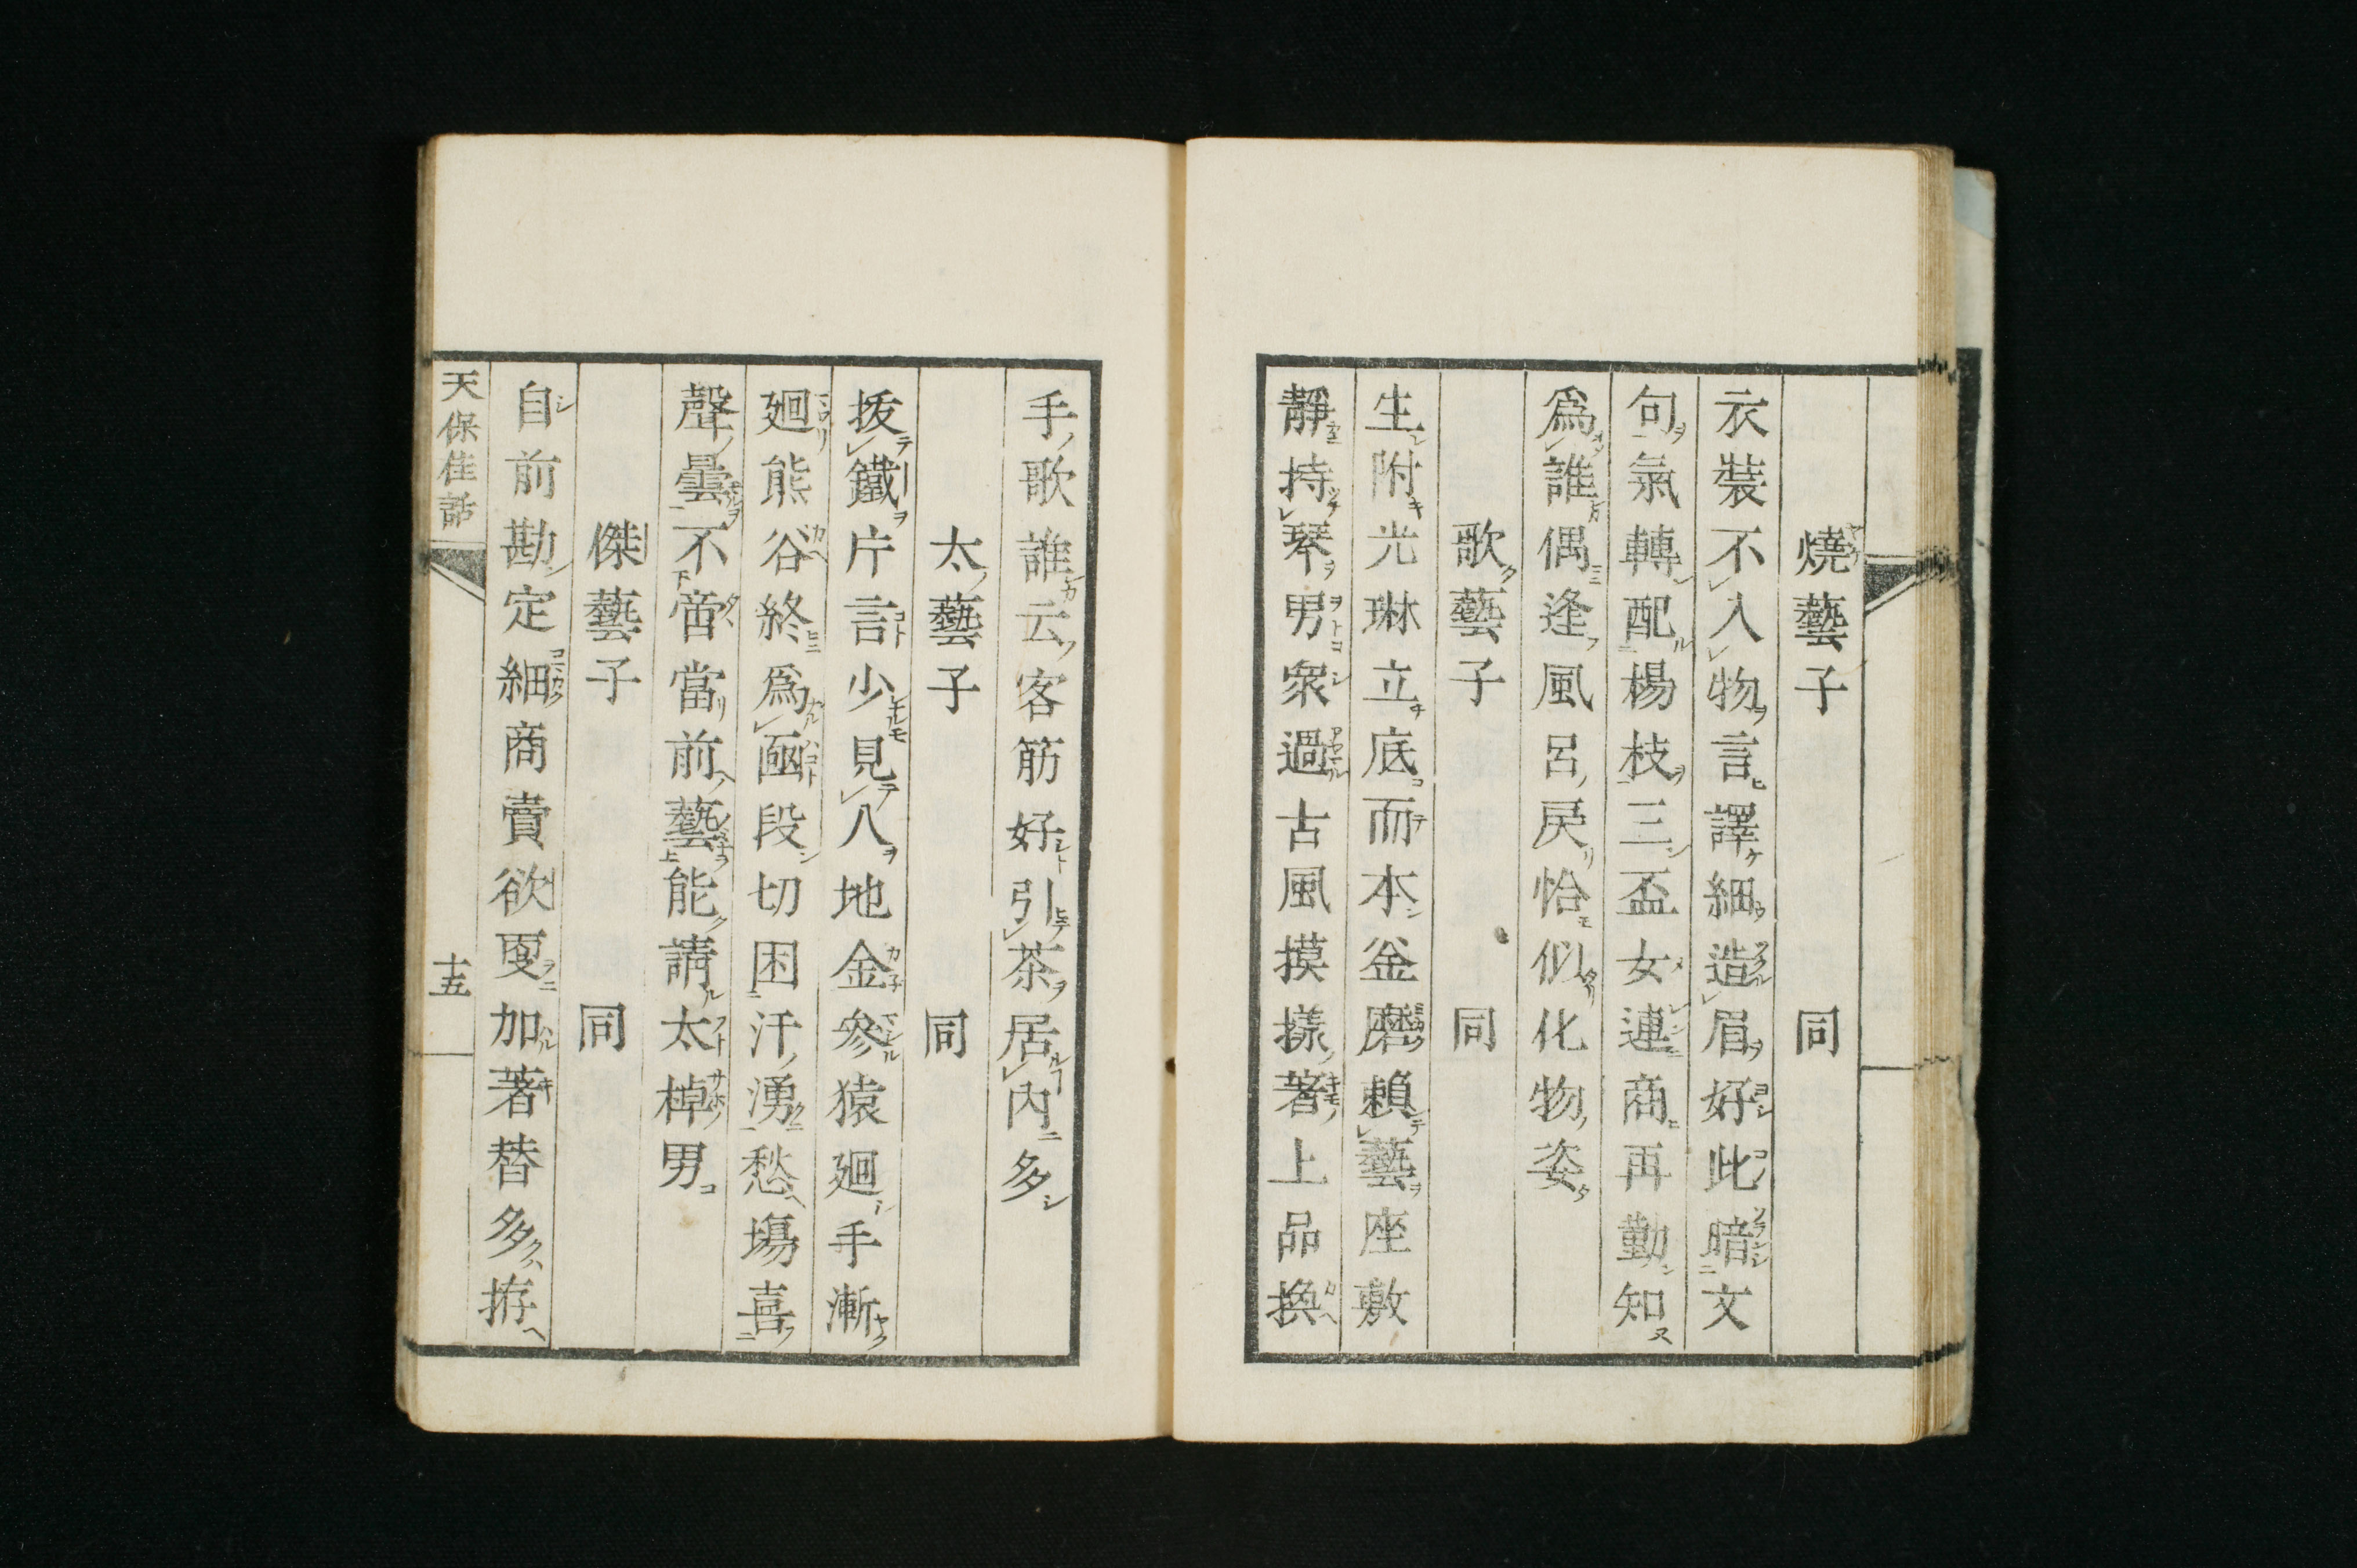 燒藝子　同
衣裝不入物言譯細造眉好此暗文
句氣轉配楊枝三盃女連商再勤知
爲誰偶逢風呂戻恰似化物姿
歌藝子　同
生附光琳立底而本釜磨賴藝座敷
靜持琴男衆過古風摸樣著上品換
手歌誰云客筋好引茶居內多
太藝子　同
拔鐵片言少見八地金參猿廻手漸
廻熊谷終爲凾段切困汗湧愁塲喜
聲曇不啻當前藝能請太棹男
傑藝子　同
自前勘定細商賣欲更加著替多拵
天保佳話　十五